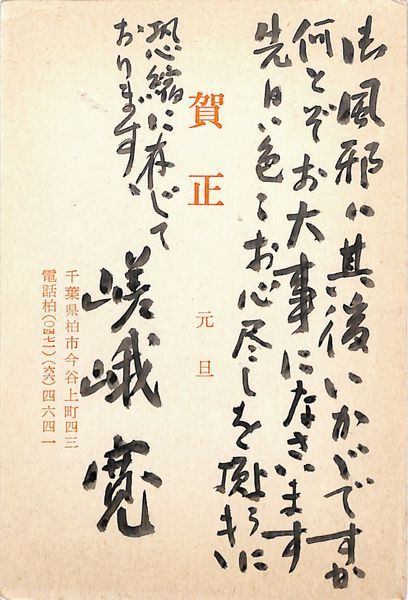 お風邪は其後いかがですか
何とぞお大事になさいます
先日は色々お心尽しを
恐縮に存じて
おります
賀正
元旦
嵯峨寛
千葉県柏市今谷上町四三
電話柏(〇四七一)(六六)四六四一